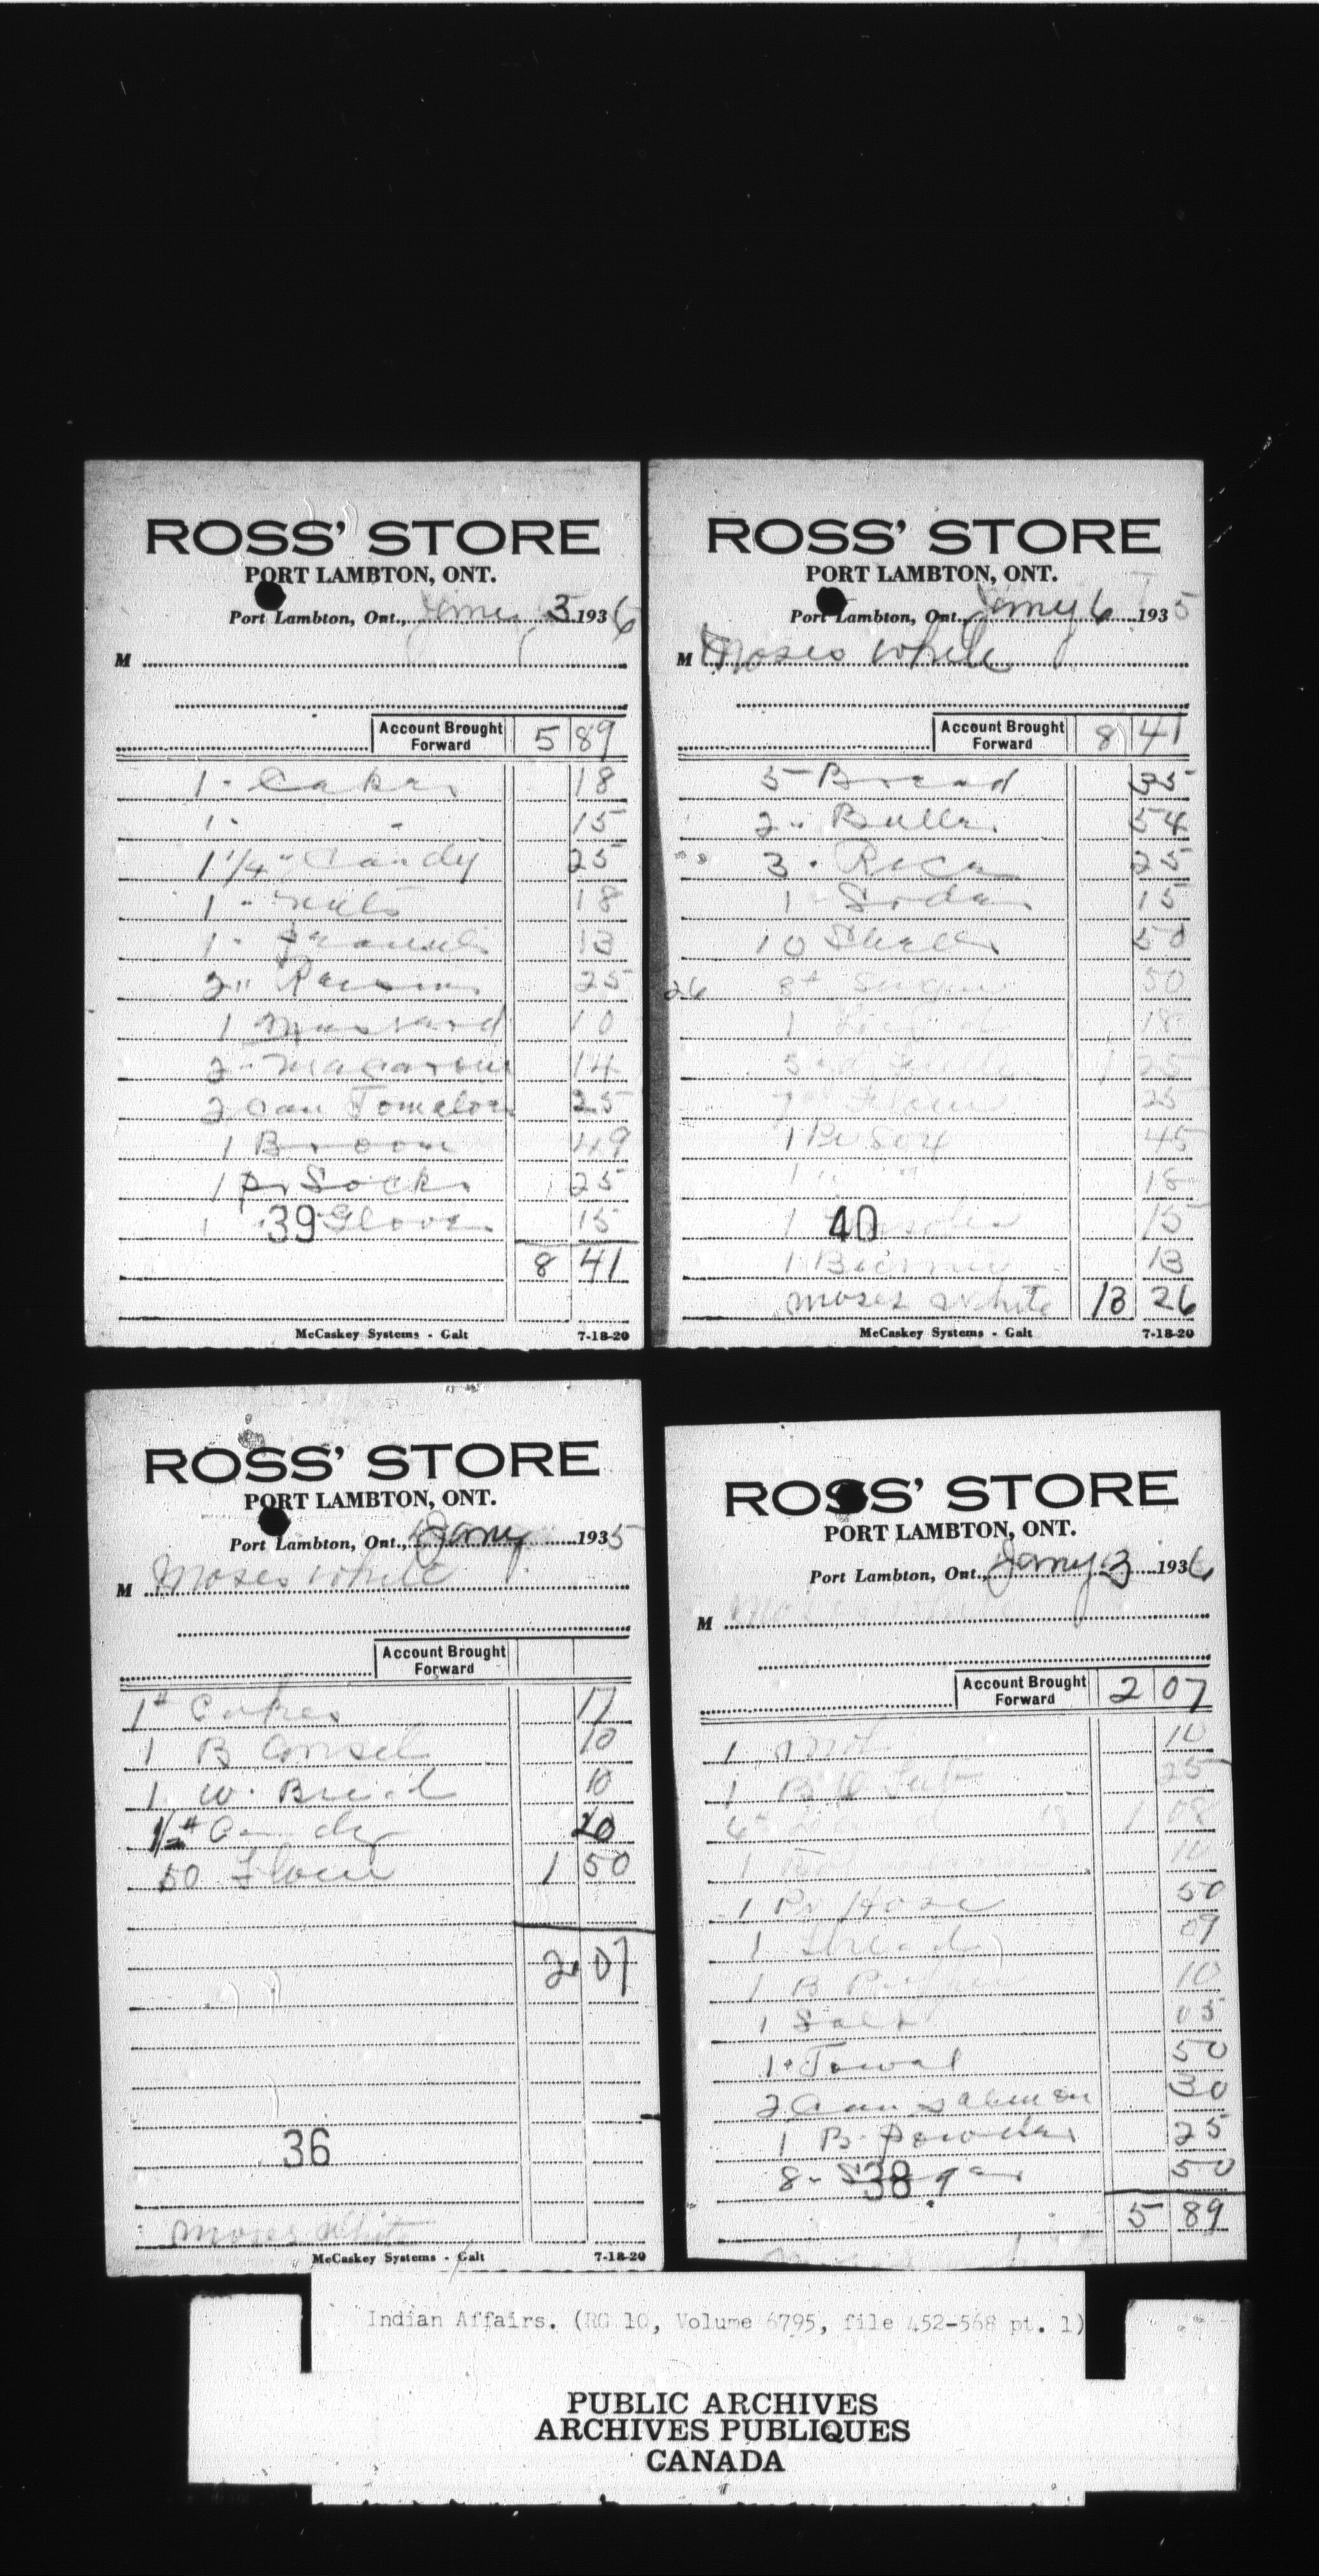 ROSS' STORE
PORT LAMBTON, ONT.
Port Lambton, Ont., 3 1936
M
Account Brought Forward 5 89
1 " Cakes 18
1 " " 15
1 1/4 " Candy 25
1 " nuts 18
1 " 13
2 " Raisins 25
1 Mustard 10
2 " Macaroni 14
2 Can Tomatoes 25
1 Broom 49
1 pr Socks 25
1 " Gloves 15
39
8 41
McCaskey Systems - Galt 7-18-20
ROSS' STORE
PORT LAMBTON, ONT.
Port Lambton, Ont., Jany 6 1935
M Moses White
Account Brought Forward 8 41
5 Bread 35
2 " Butter 54
3 " Rice 25
1 Soda 15
10 Shells 50
26 8# Sugar 50
1 18
1 25
25
1 Pr Sox 45
1 " " 18
1 15
40
1 13
moses white 13 26
McCaskey Systems - Galt 7-18-20
ROSS' STORE
PORT LAMBTON, ONT.
Port Lambton, Ont., Jany 1935
M Moses White
Account Brought Forward
1# Cakes 17
1 B 10
1 W. Bread 10
1/2# Candy 20
50 Flour 1 50
2.07
36
moses white
McCaskey Systems - Galt 7-18-20
ROSS' STORE
PORT LAMBTON, ONT.
Port Lambton, Ont., Jany 3 1936
M
Account Brought Forward 2 07
1 10
1 25
6# 18 1 08
1 10
1 Pr Hose 50
1 Thread 09
1 B 10
1 Salt 05
1 " Towel 50
2 Can Salmon 30
1 B. Powder 25
8 " Sugar 50
38
5 89
Indian Affairs. (RG 10, Volume 6795, file 452-568 pt. 1)
PUBLIC ARCHIVES
ARCHIVES PUBLIQUES
CANADA